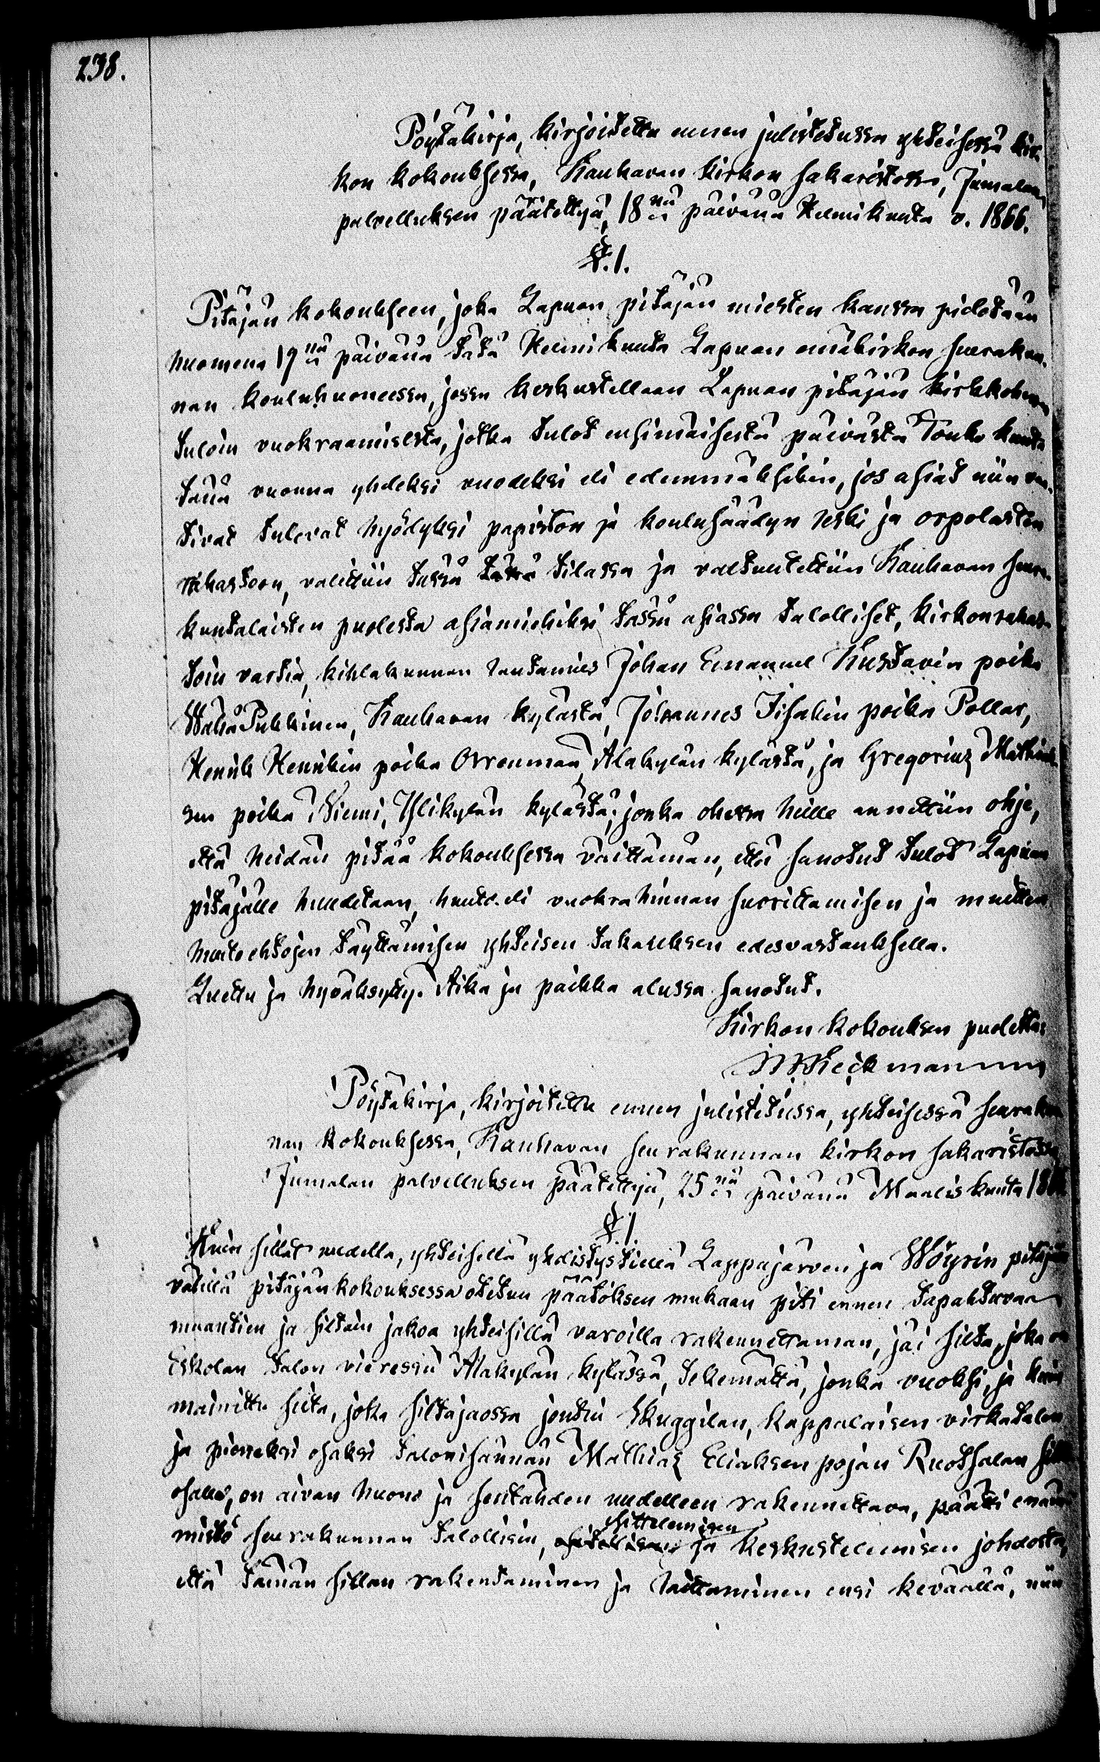 238.
Pöytäkirja, kirjoitettu ennen julistetussa yhteisessä kir-
kon kokouksessa, Kauhavan kirkon sakaristossa, Jumalan
palvelluksen päätettyä, 18 nä päivänä Helmikuuta v. 1866.
§.1.
Pitäjän kokoukseen, joka Lapuan pitäjän miesten kanssa pidetään
huomena 19 nä päivänä tätä Helmikuuta Lapuan emäkirkon seurakun-
nan kouluhuoneessa, jossa keskustellaan Lapuan pitäjän kirkkoherra
tuloin vuokraamisesta, jotka tulot ensimäisestä päivästä Touko kuuta
tänä vuonna yhdeksi vuodeksi eli edemmäksikin, jos asiat niin vaa-
tivat tulevat hyödyksi papiston ja koulusäädyn leski ja orpolasten
rahastoon, valittiin tässä tilassa ja valtuutettiin Kauhavan seura-
kuntalaisten puolesta asiamiehiksi tässä asiassa talolliset, kirkonrahas-
toin vartia, kihlakunnan lautamies Johan Emanuel Kustavin poika
WähäPukkinen, Kauhavan kylästä, Johannes Iisakin poika Pollar,
Henrik Henrikin poika Orrenmaa, Alakylän kylästä, ja Gregorius Mathiak-
sen poika Niemi, Ylikylän kylästä; jonka ohessa heille annettiin ohje,
että heidän pitää kokouksessa väittämän, että sanotut tulot Lapuan
pitäjälle huudetaan, huuto eli vuokrahinnan suorittamisen ja muitten
huutoehtojen täyttämisen yhteisen takauksen edesvastauksella.
Luettu ja hyväksytty. Aika ja paikka alussa sanotut.
Kirkon kokouksen puolesta:
Heikman
Pöytäkirja, kirjoitettu ennen julistetussa, yhteisessä seurakun
nan kokouksessa, Kauhavan seurakunnan kirkon sakaristossa
Jumalan palvelluksen päätettyä, 25 nä päivänä Maaliskuuta
§.1
Kuin sillat uudella, yhteisellä yhdistystiellä Lappajärven ja Wöyrin pitäjän
välillä pitäjänkokouksessa otetun päätöksen mukaan piti ennen tapahtuvaa
maantien ja siltain jakoa yhteisillä varoilla rakennettaman, jäi silta, joka on
Eskolan talon vieressä Alakylän kylässä, tekemättä, jonka vuoksi, ja kuin
mainittu silta, joka siltajaossa joutui Skuggilan, kappalaisen virkatalon
ja pieneksi osaksi talonisännän Mathias Eliaksen pojan Ruotsalan
osalle, on aivan huono ja sentähden uudelleen rakennettava, päätti enäm
mistö seurakunnan talollisia, esittelemisen ja keskustelemisen johdosta,
että tämän sillan rakentaminen ja laittaminen ensi keväällä, niin